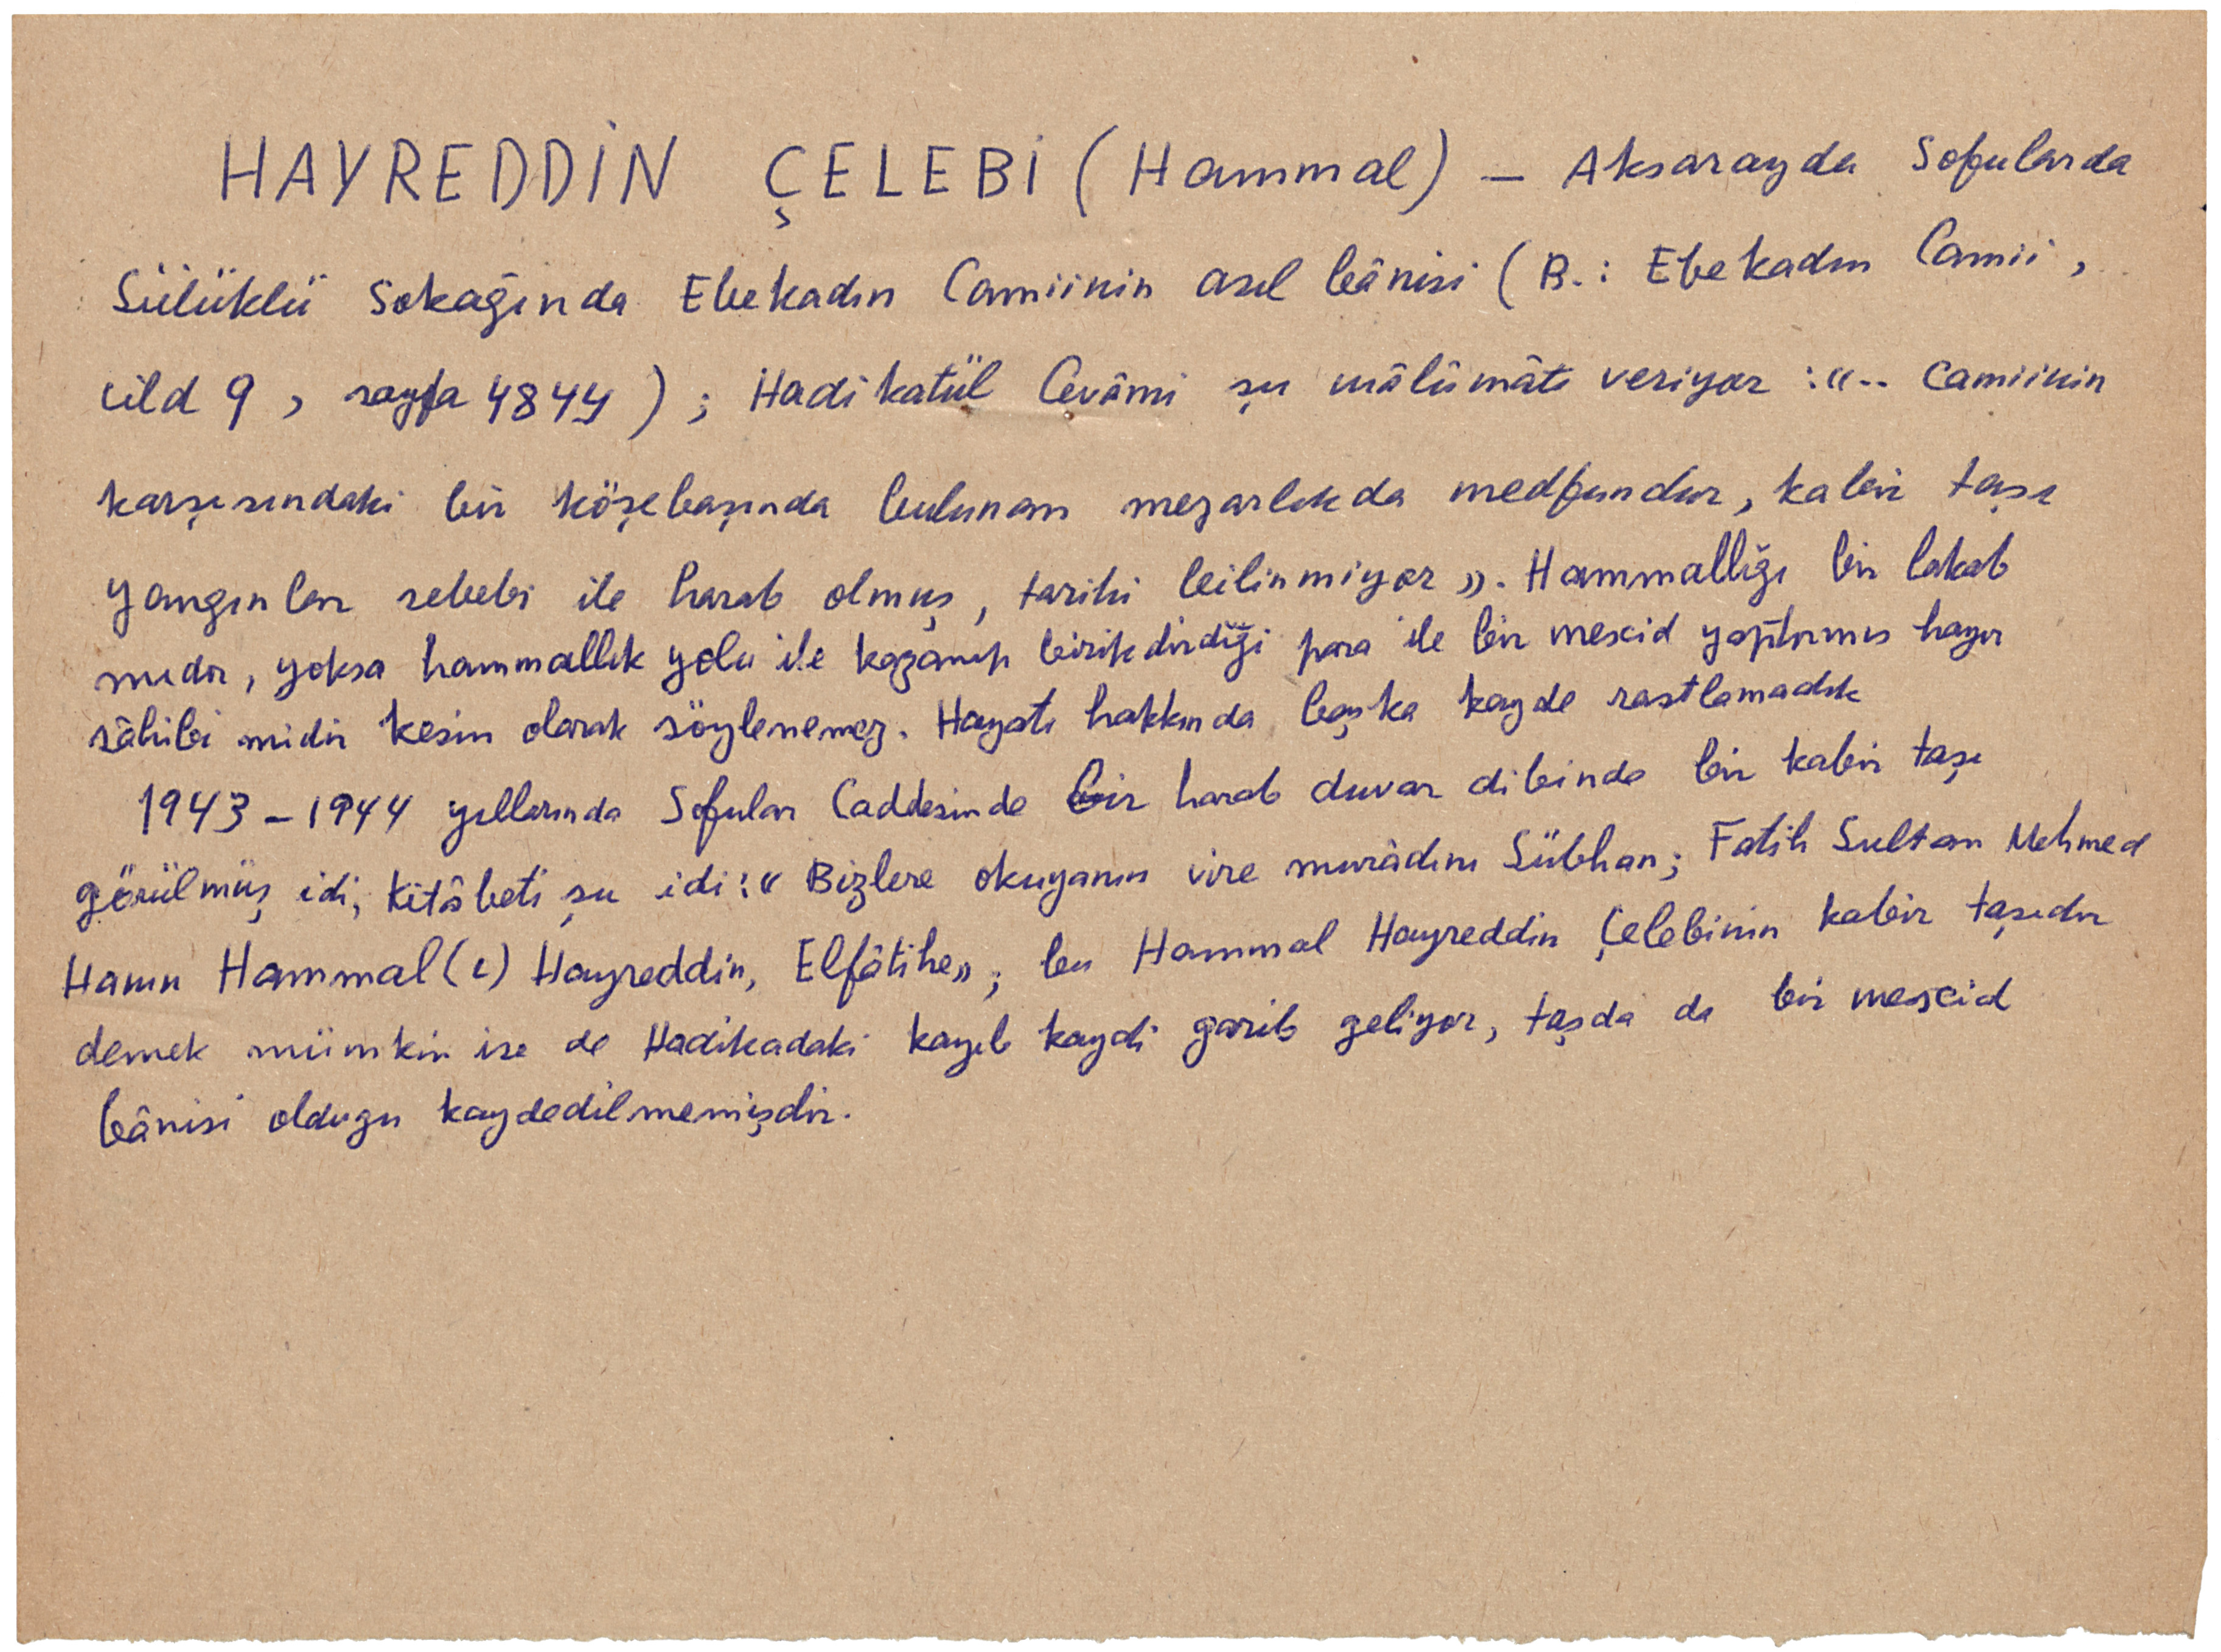 HAYREDDİN ÇELEBİ (Hammal) — Aksarayda Sofularda
Sülüklü Sokağında Ebekadın Camiinin asıl bânisi (B.: Ebekadın Camii,
cild 9, sayfa 4844); Hadikatül Cevâmi şu mâlûmâtı veriyor: «.. camiinin
karşısındaki bir köşebaşında bulunan mezarlıkda medfundur, kabir taşı
yangınlar sebebi ile harab olmuş, tarihi bilinmiyor». Hammallığı bir lakab
mıdır, yoksa hammallık yolu ile kazanıp birikdirdiği para ile bir mescid yaptırmış hayır
sâhibi midir kesin olarak söylenemez. Hayatı hakkında başka kayde rastlamadık
1943-1944 yıllarında Sofular Caddesinde bir harab duvar dibinde bir kabir taşı
görülmüş idi, kitâbeti şu idi: «Bizlere okuyanın vire murâdını Sübhan; Fatih Sultan Mehmed
Hanın Hammal(ı) Hayreddin, Elfâtihe»; bu Hammal Hayreddin Çelebinin kabir taşıdır
demek mümkin ise de Hadikadaki kayıb kaydi garib geliyor, taşda da bir mescid
bânisi olduğu kaydedilmemişdir.